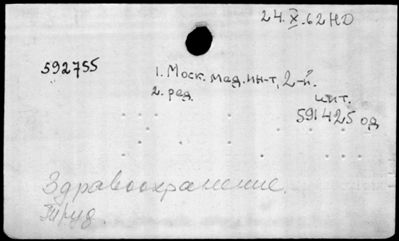 24.X.62 НО
592755
1. Моск. мед. ин-т, 2-й.
2. ред.
цит.
591425 од
Здравоохранение.
Труд.